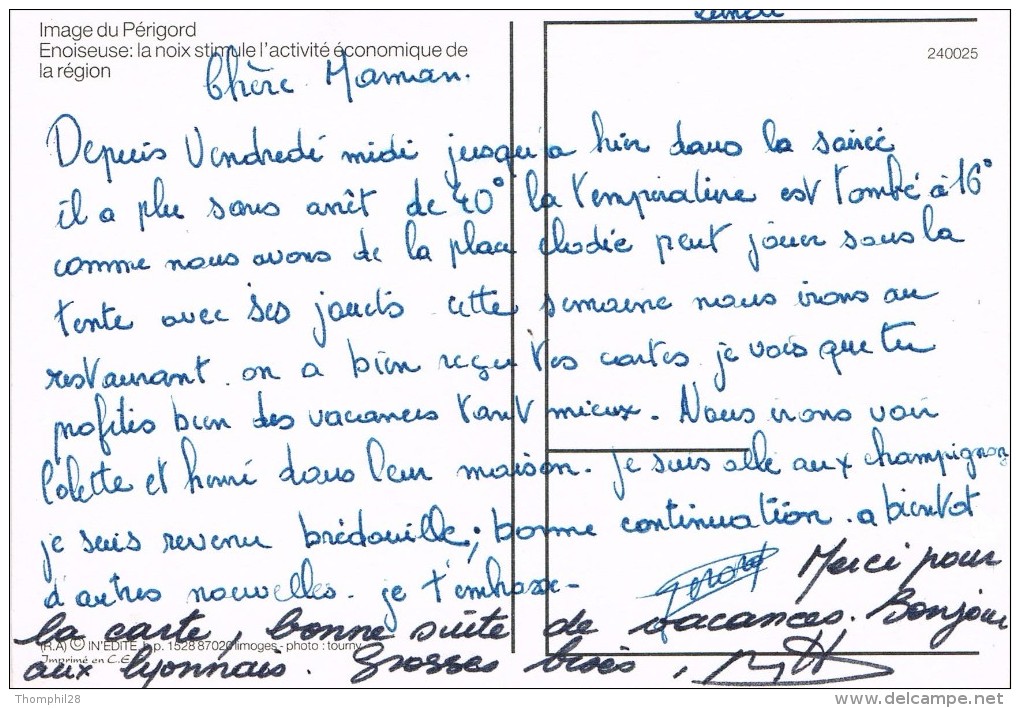 Lundi
Image du Périgord
Enoiseuse: la noix stimule l'activité économique de
la région
240025
Chère Maman.
Depuis Vendredi midi jusqu'a hier dans la soirée
il a plu sans arrêt de 40° la température est tombé à 16°
comme nous avons de la place élodie peut jouer sous la
tente avec ses jouets cette semaine nous irons au
restaurant. on a bien reçu tes cartes. je vois que tu
profites bien des vacances tant mieux. Nous irons voir
Colette et henri dans leur maison. je suis allé aux champignon
je suis revenu brédouille; bonne continuation. a bientot
d'autres nouvelles. je t'embrasse-
Merci pour
la carte, bonne suite de vacances. Bonjour
aux lyonnais. Grosses bises,
(R.A) © IN'EDITE b.p. 1528 87020 limoges - photo : tourny
Imprimé en C.E.
Thomphil28
www.delcampe.net